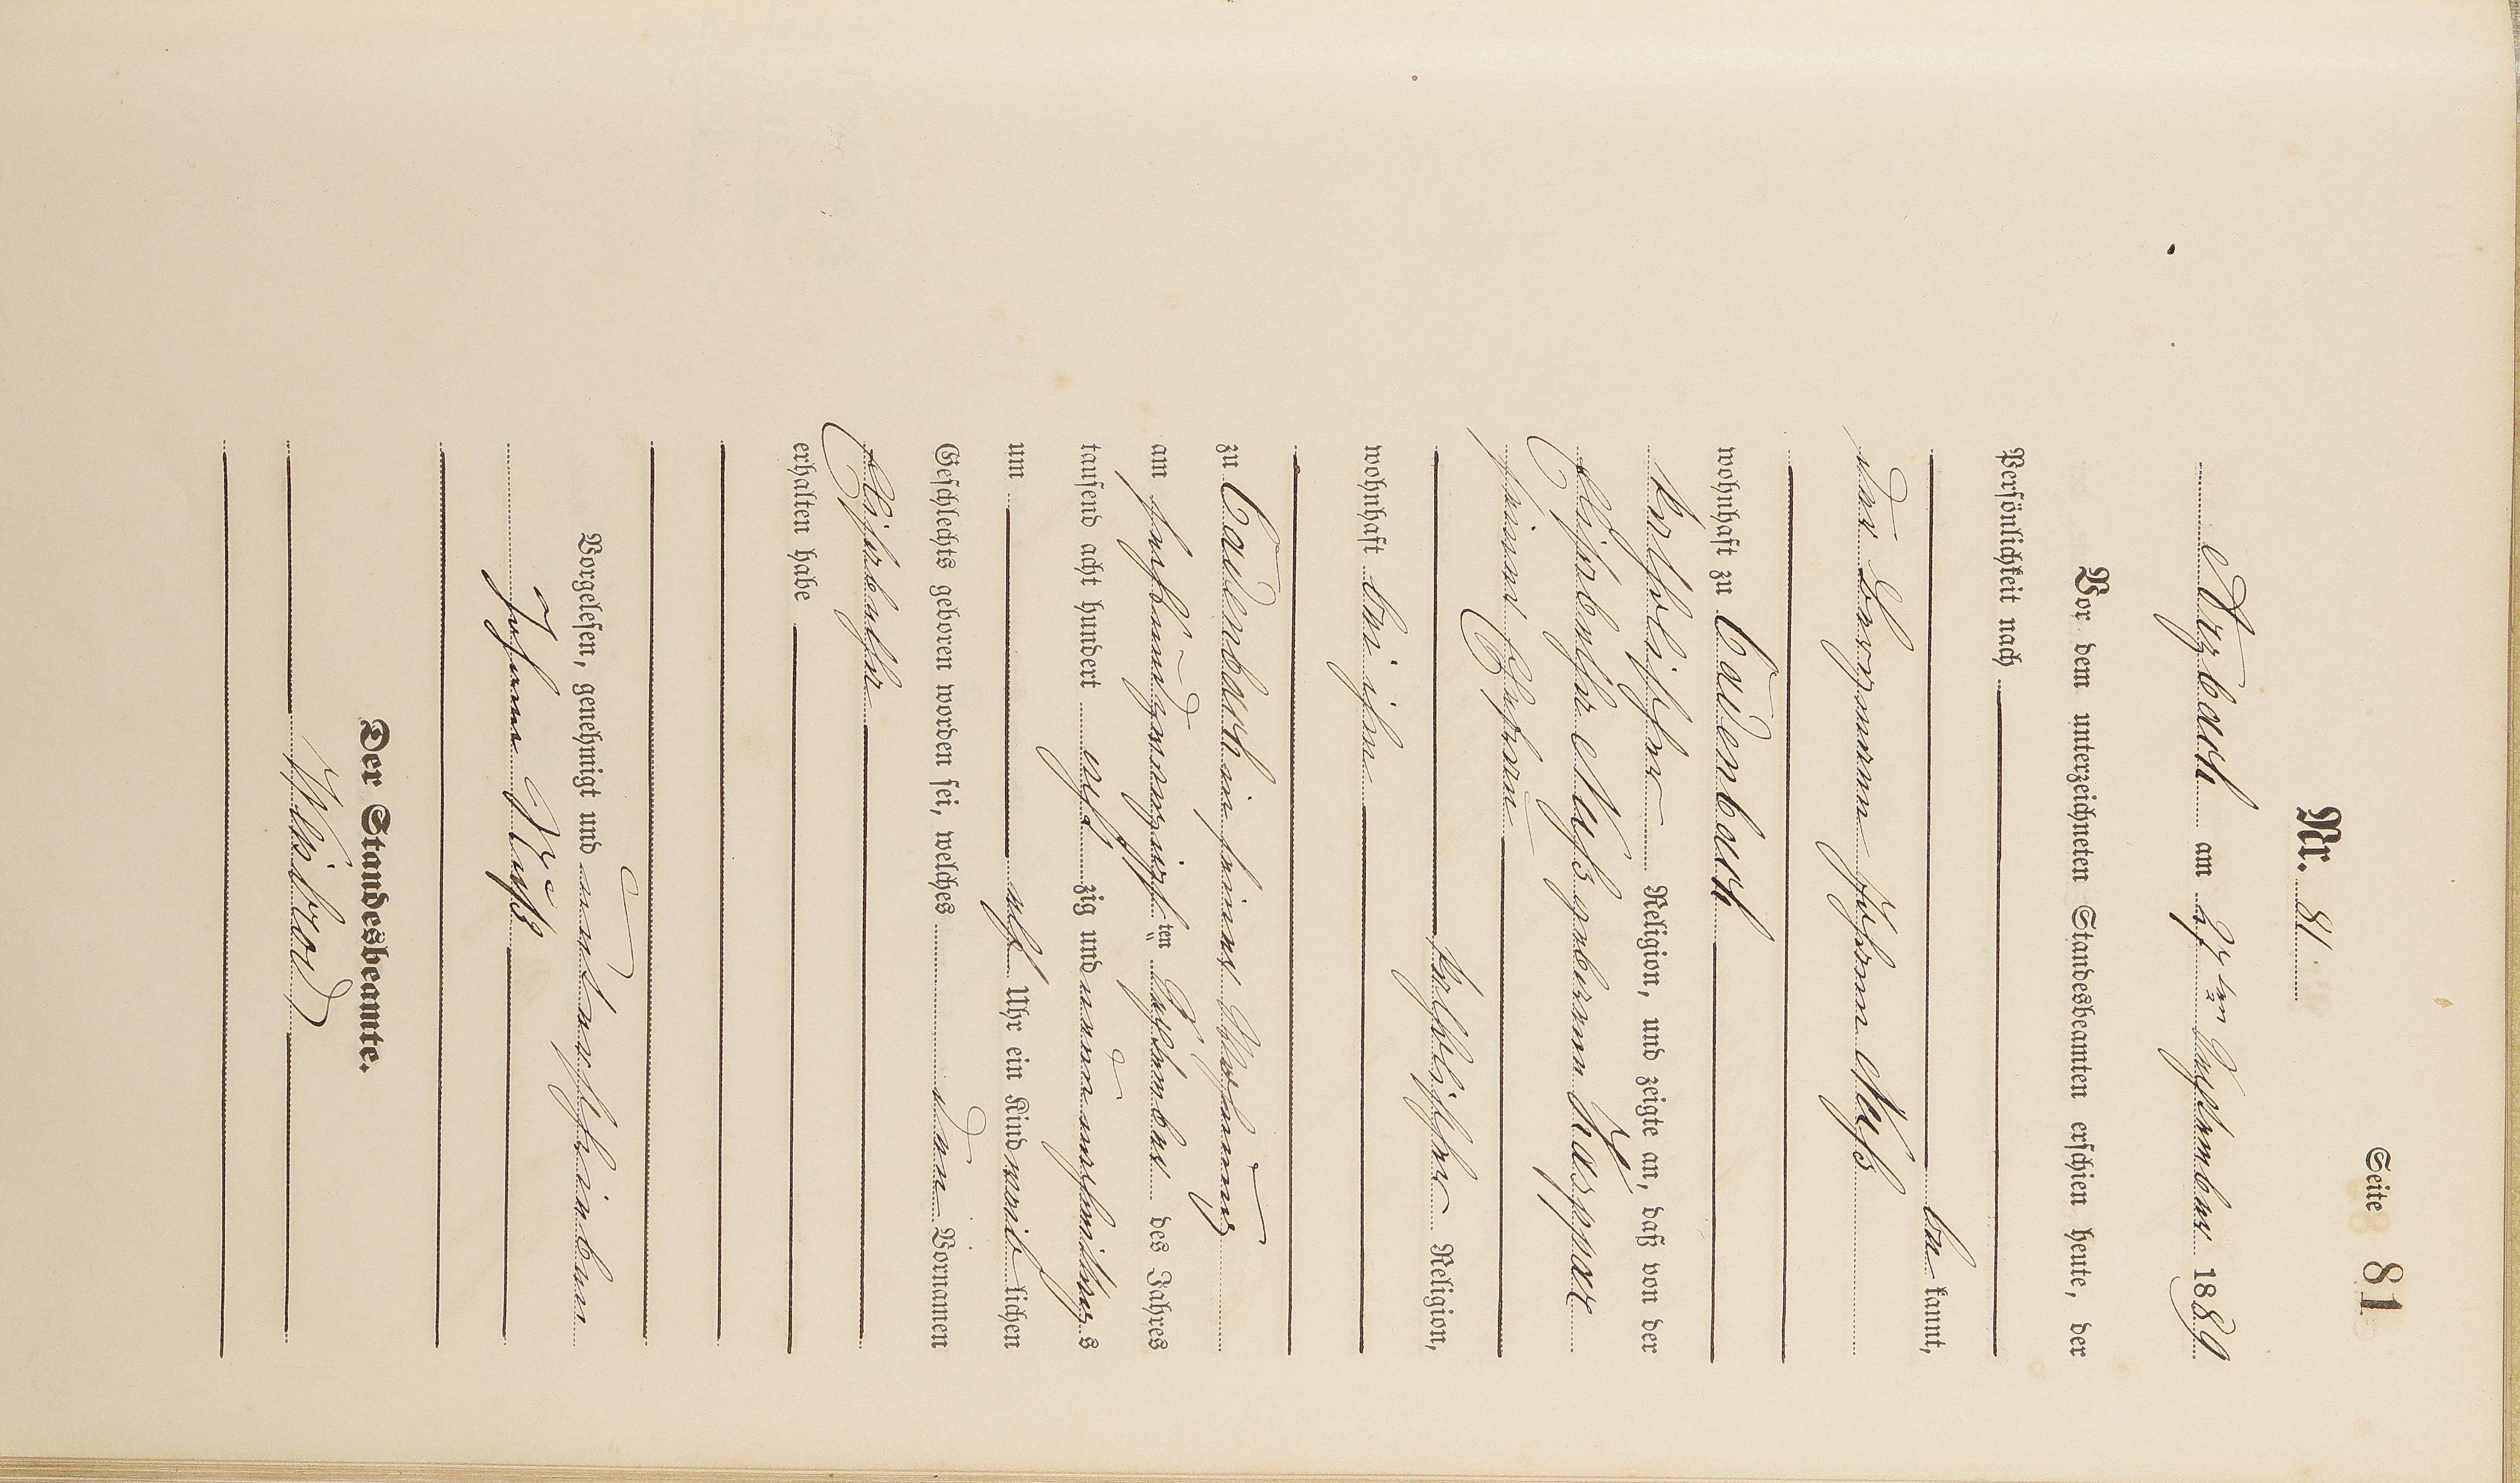 Seite 81
Nr. 81
Arzbach am 27ten September 1889
Vor dem unterzeichneten Standesbeamten erschien heute, der
Persönlichkeit nach
be kannt,
der Bergmann Johann Nuß
wohnhaft zu Cadenbach
katholischer Religion, und zeigte an, daß von der
Elisabetha Nuß geborenen Kasppar
seiner Ehefrau
katholischer Religion,
wohnhaft bei ihm
zu Cadenbach in seiner Wohnung
am sechsundzwanzigsten September des Jahres
tausend acht hundert acht zig und neun
um elf Uhr ein Kind weib lichen
Geschlechts geboren worden sei, welches den Vornamen
Elisabetha
erhalten habe
Vorgelesen, genehmigt und unterschrieben
Johann Nuß
Der Standesbeamte.